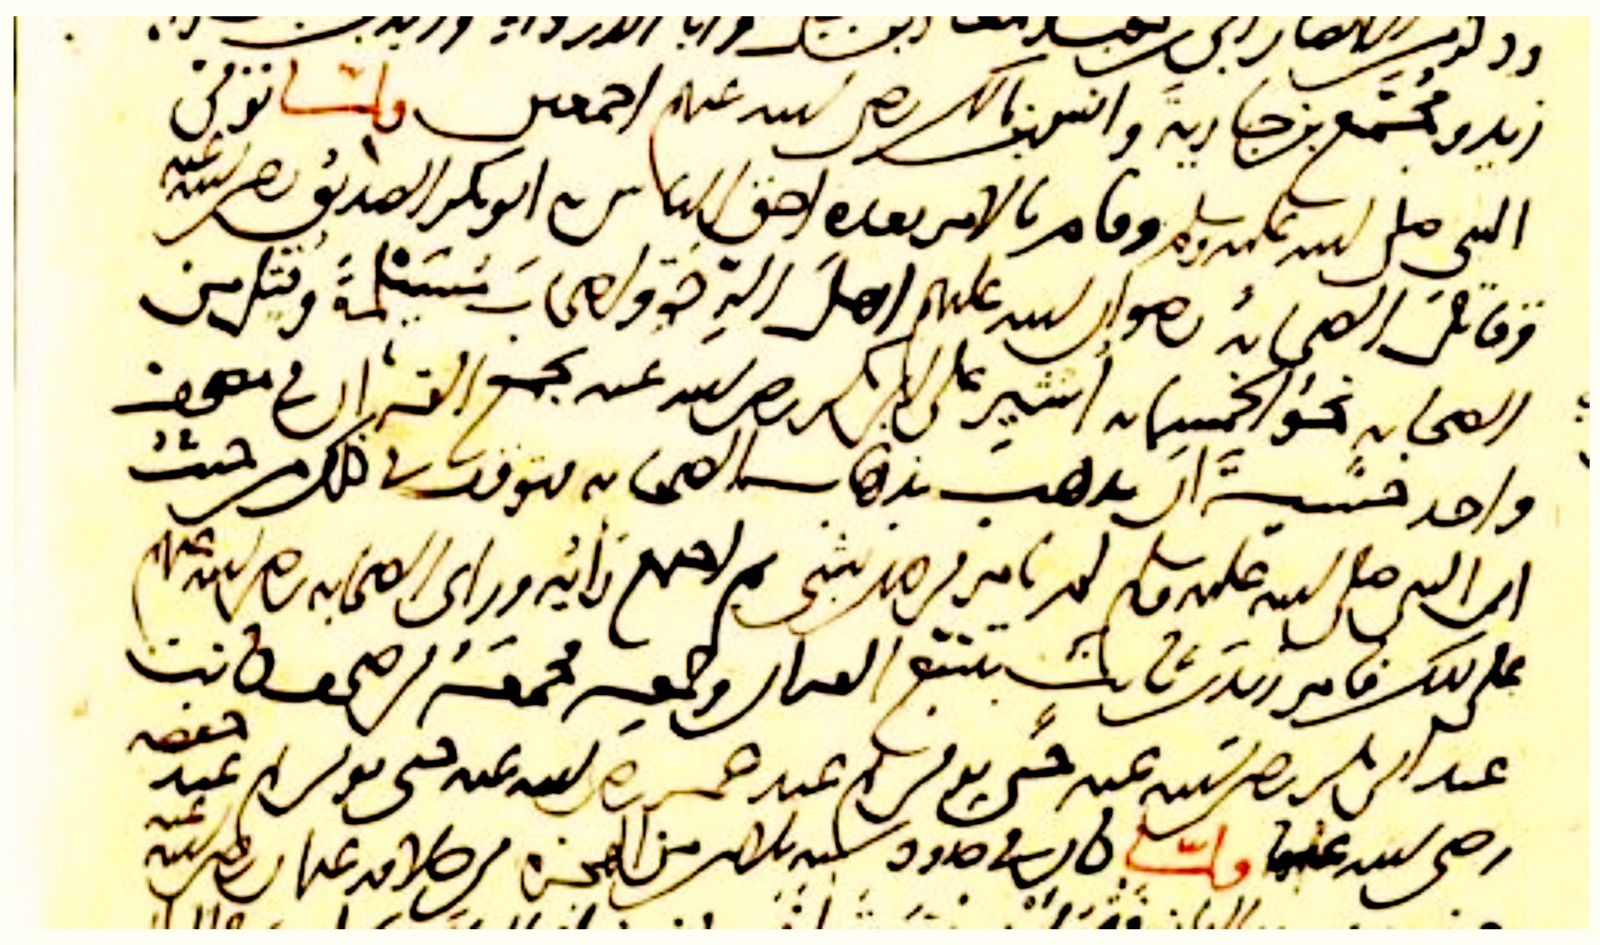 وذكر من الأنصار أبي بن كعب ومعاذ بن جبل وأبا الدرداء وزيد بن ثابت وأبا
زيد ومُجَمِّع بن جارية وأنس بن مالك رضي الله عنهم أجمعين ولما توفي
النبي صلى الله عليه وسلم وقام بالأمر بعده أحق الناس به أبو بكر الصديق رضي الله عنه
وقاتل الصحابة رضوان الله عليهم أهل الردة وأصحاب مسيلمة وقتل من
الصحابة نحو الخمسمائة أشير على أبي بكر رضي الله عنه بجمع القرآن في مصحف
واحد خشية أن يذهب بذهاب الصحابة فتوقف في ذلك من حيث
إن النبي صلى الله عليه وسلم لم يأمر في ذلك بشيء ثم اجتمع رأيه ورأى الصحابة رضي الله عنهم
على ذلك فأمر زيد بن ثابت بتتبع القرآن وجمعه فجمعه في صحف كانت
عند أبي بكر رضي الله عنه حتى توفي ثم عند عمر رضي الله عنه حتى توفي ثم عند حفصة
رضي الله عنها ولما كان في حدود سنة ثلاثين من الهجرة في خلافة عثمان رضي الله عنه